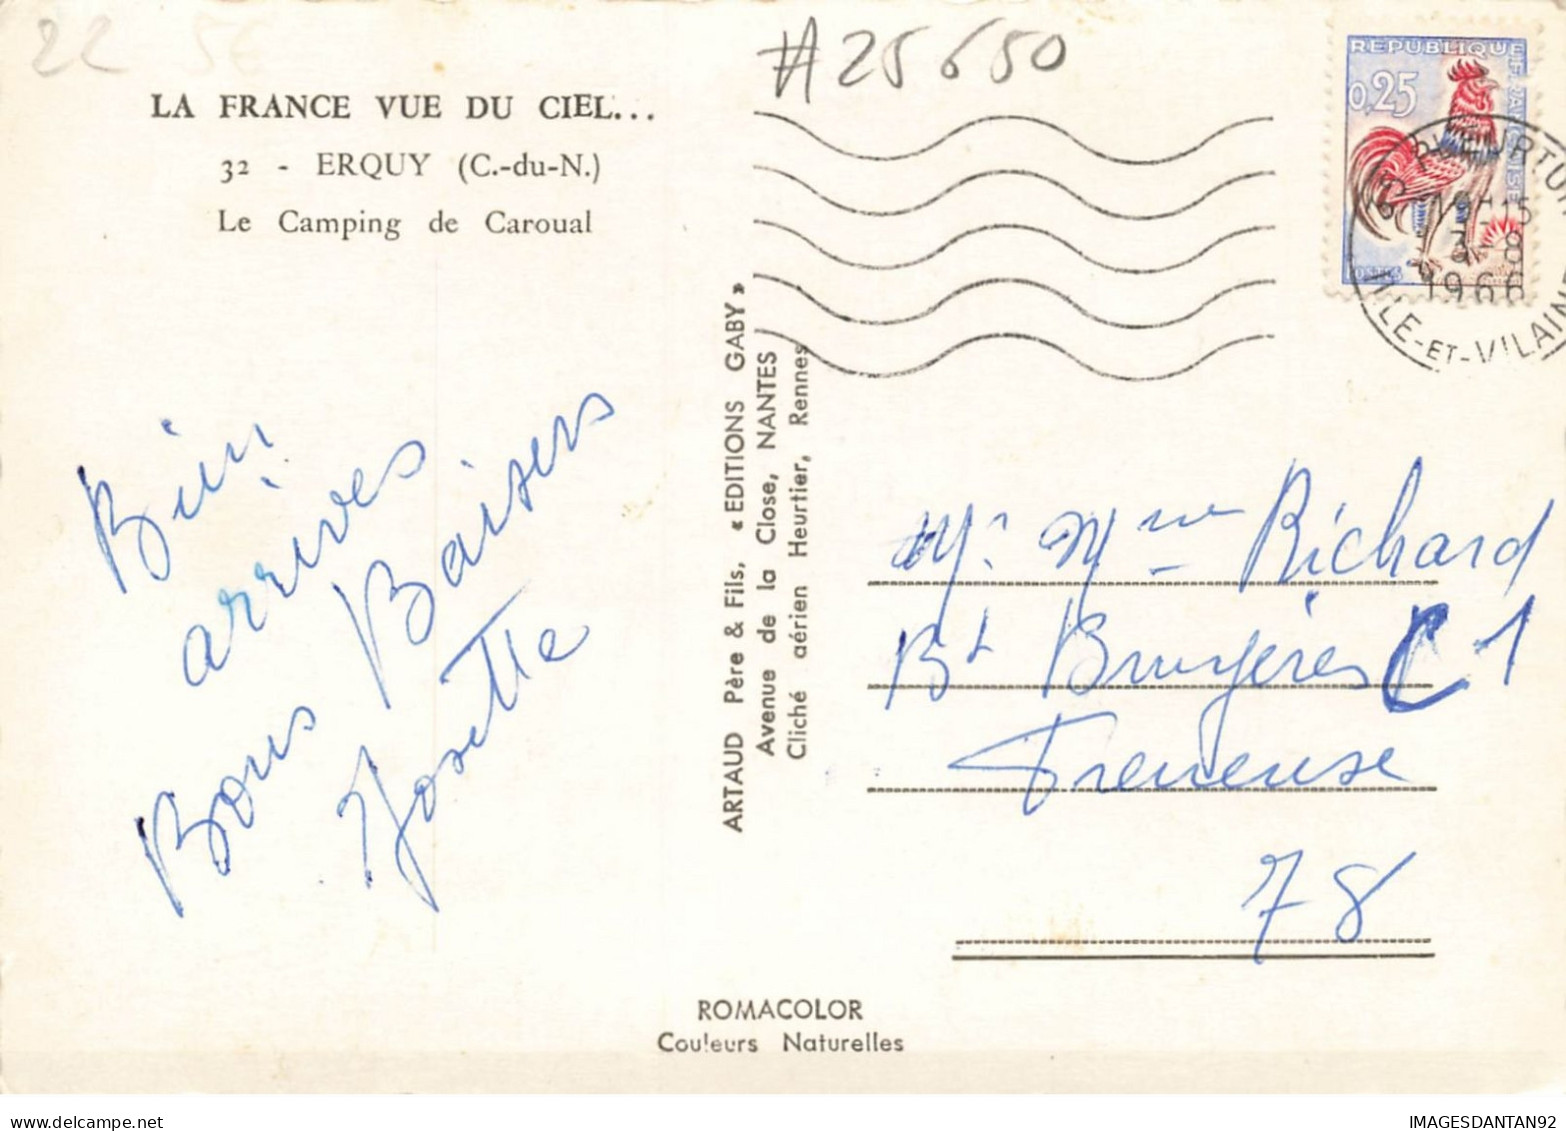 22 5€
#25650
LA FRANCE VUE DU CIEL...
32 - ERQUY (C.-du-N.)
Le Camping de Caroual
REPUBLIQUE FRANÇAISE
0,25
POSTES
PLEURTUIT
19H15
3-8
1966
ILLE-ET-VILAINE
Bien
arrivés
Bons Baisers
Josette
ARTAUD Père & Fils, « EDITIONS GABY »
Avenue de la Close, NANTES
Cliché aérien Heurtier, Rennes
Mr. Mme Richard
Bt Bruyères C1
Freneuse
78
ROMACOLOR
Couleurs Naturelles
IMAGESDANTAN92
www.delcampe.net